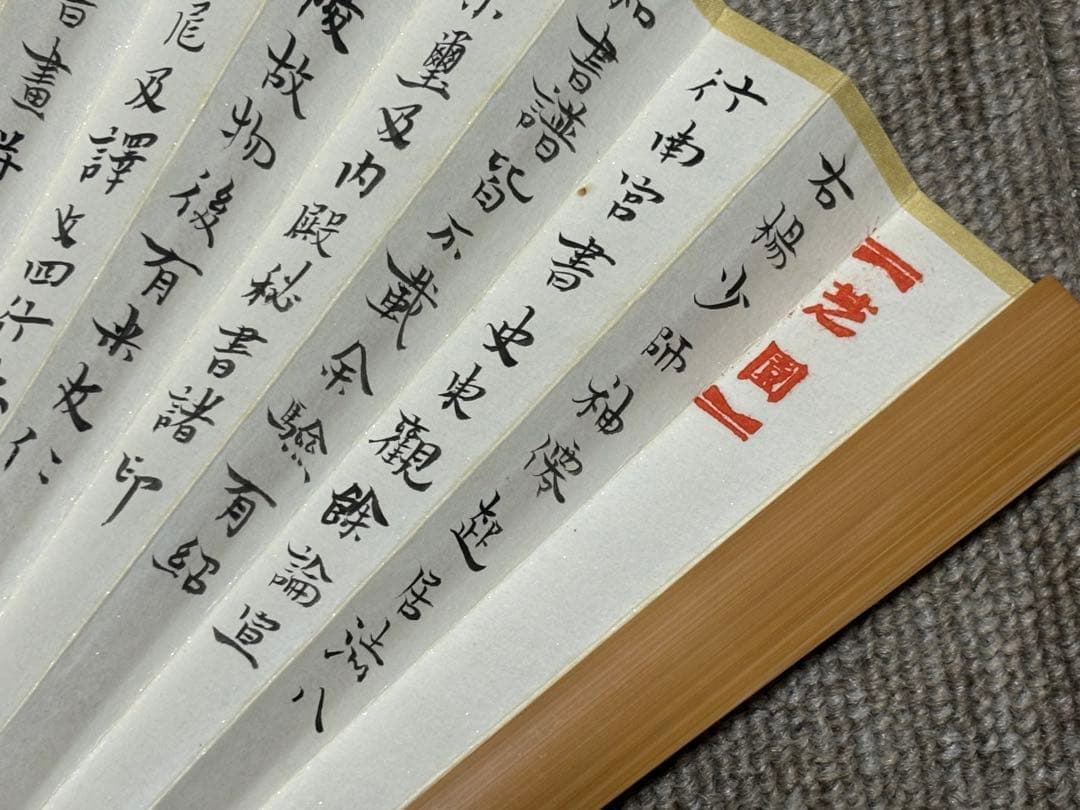 芝園
右楊少師神僊起居法八
行南宮書史東觀餘論宣
和書譜皆不載余驗有紹
小璽及内殿秘書諸印
陵故物後有米友仁
尾及譯文四行
畫